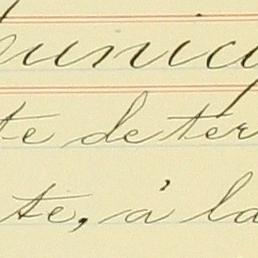 unic
te de ter
te, à la